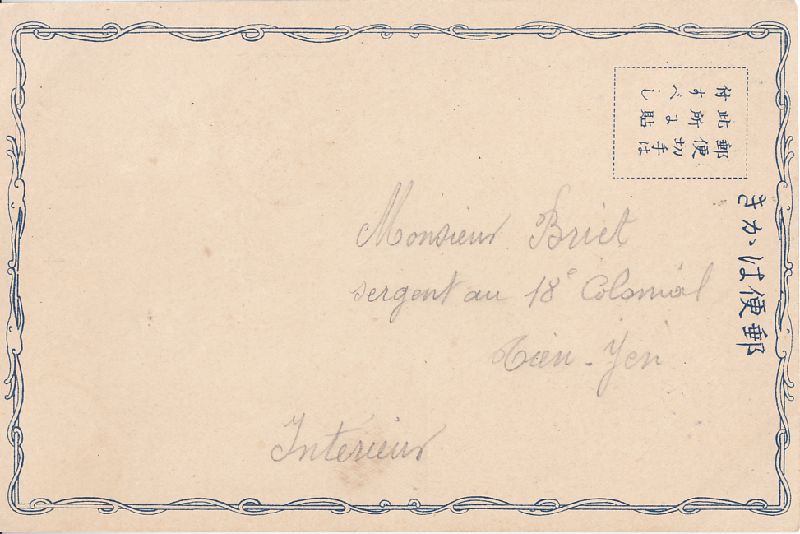 郵便切手は
此所に貼
付すべし
郵便はかき
Monsieur Briet
sergent au 18e Colonial
Tien-Yen
Interieur